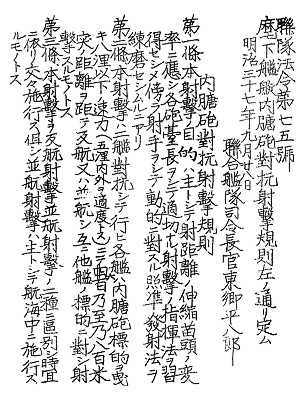 聯隊法令第七五號
麾下艦艇内膅砲對抗射撃規則左ノ通リ定ム
明治三十七年九月廿八日
聯合艦隊司令長官東郷平八郎
内膅砲對抗射撃規則
第一條本射撃ノ目的ハ主トシテ射距離ノ伸縮苗頭ノ変
率ニ應シ各砲臺長ヲシテ適切ナル射撃ノ指揮法ヲ習
得セシメ傍ラ射手ヲシテ動的ニ對スル照準發射法ヲ
練磨セシムルニアリ
第二條本射撃ハ二艦對抗シテ行ヒ各艦ハ内膅砲標的ヲ曳
キ八浬以下速力(五浬内外ヲ適度トス)ニテ四百乃至八百米
突距離ヲ距テ反航又ハ並航シ互ニ他艦ノ標的ニ對シ射
撃スルモノトス
第三條本射撃ヲ反航射撃並航射撃ノ二種ニ區別シ時宜
ニ依リ交々施行ス但シ並航射撃ハ主トシテ航海中ニ施行ス
ルモノトス